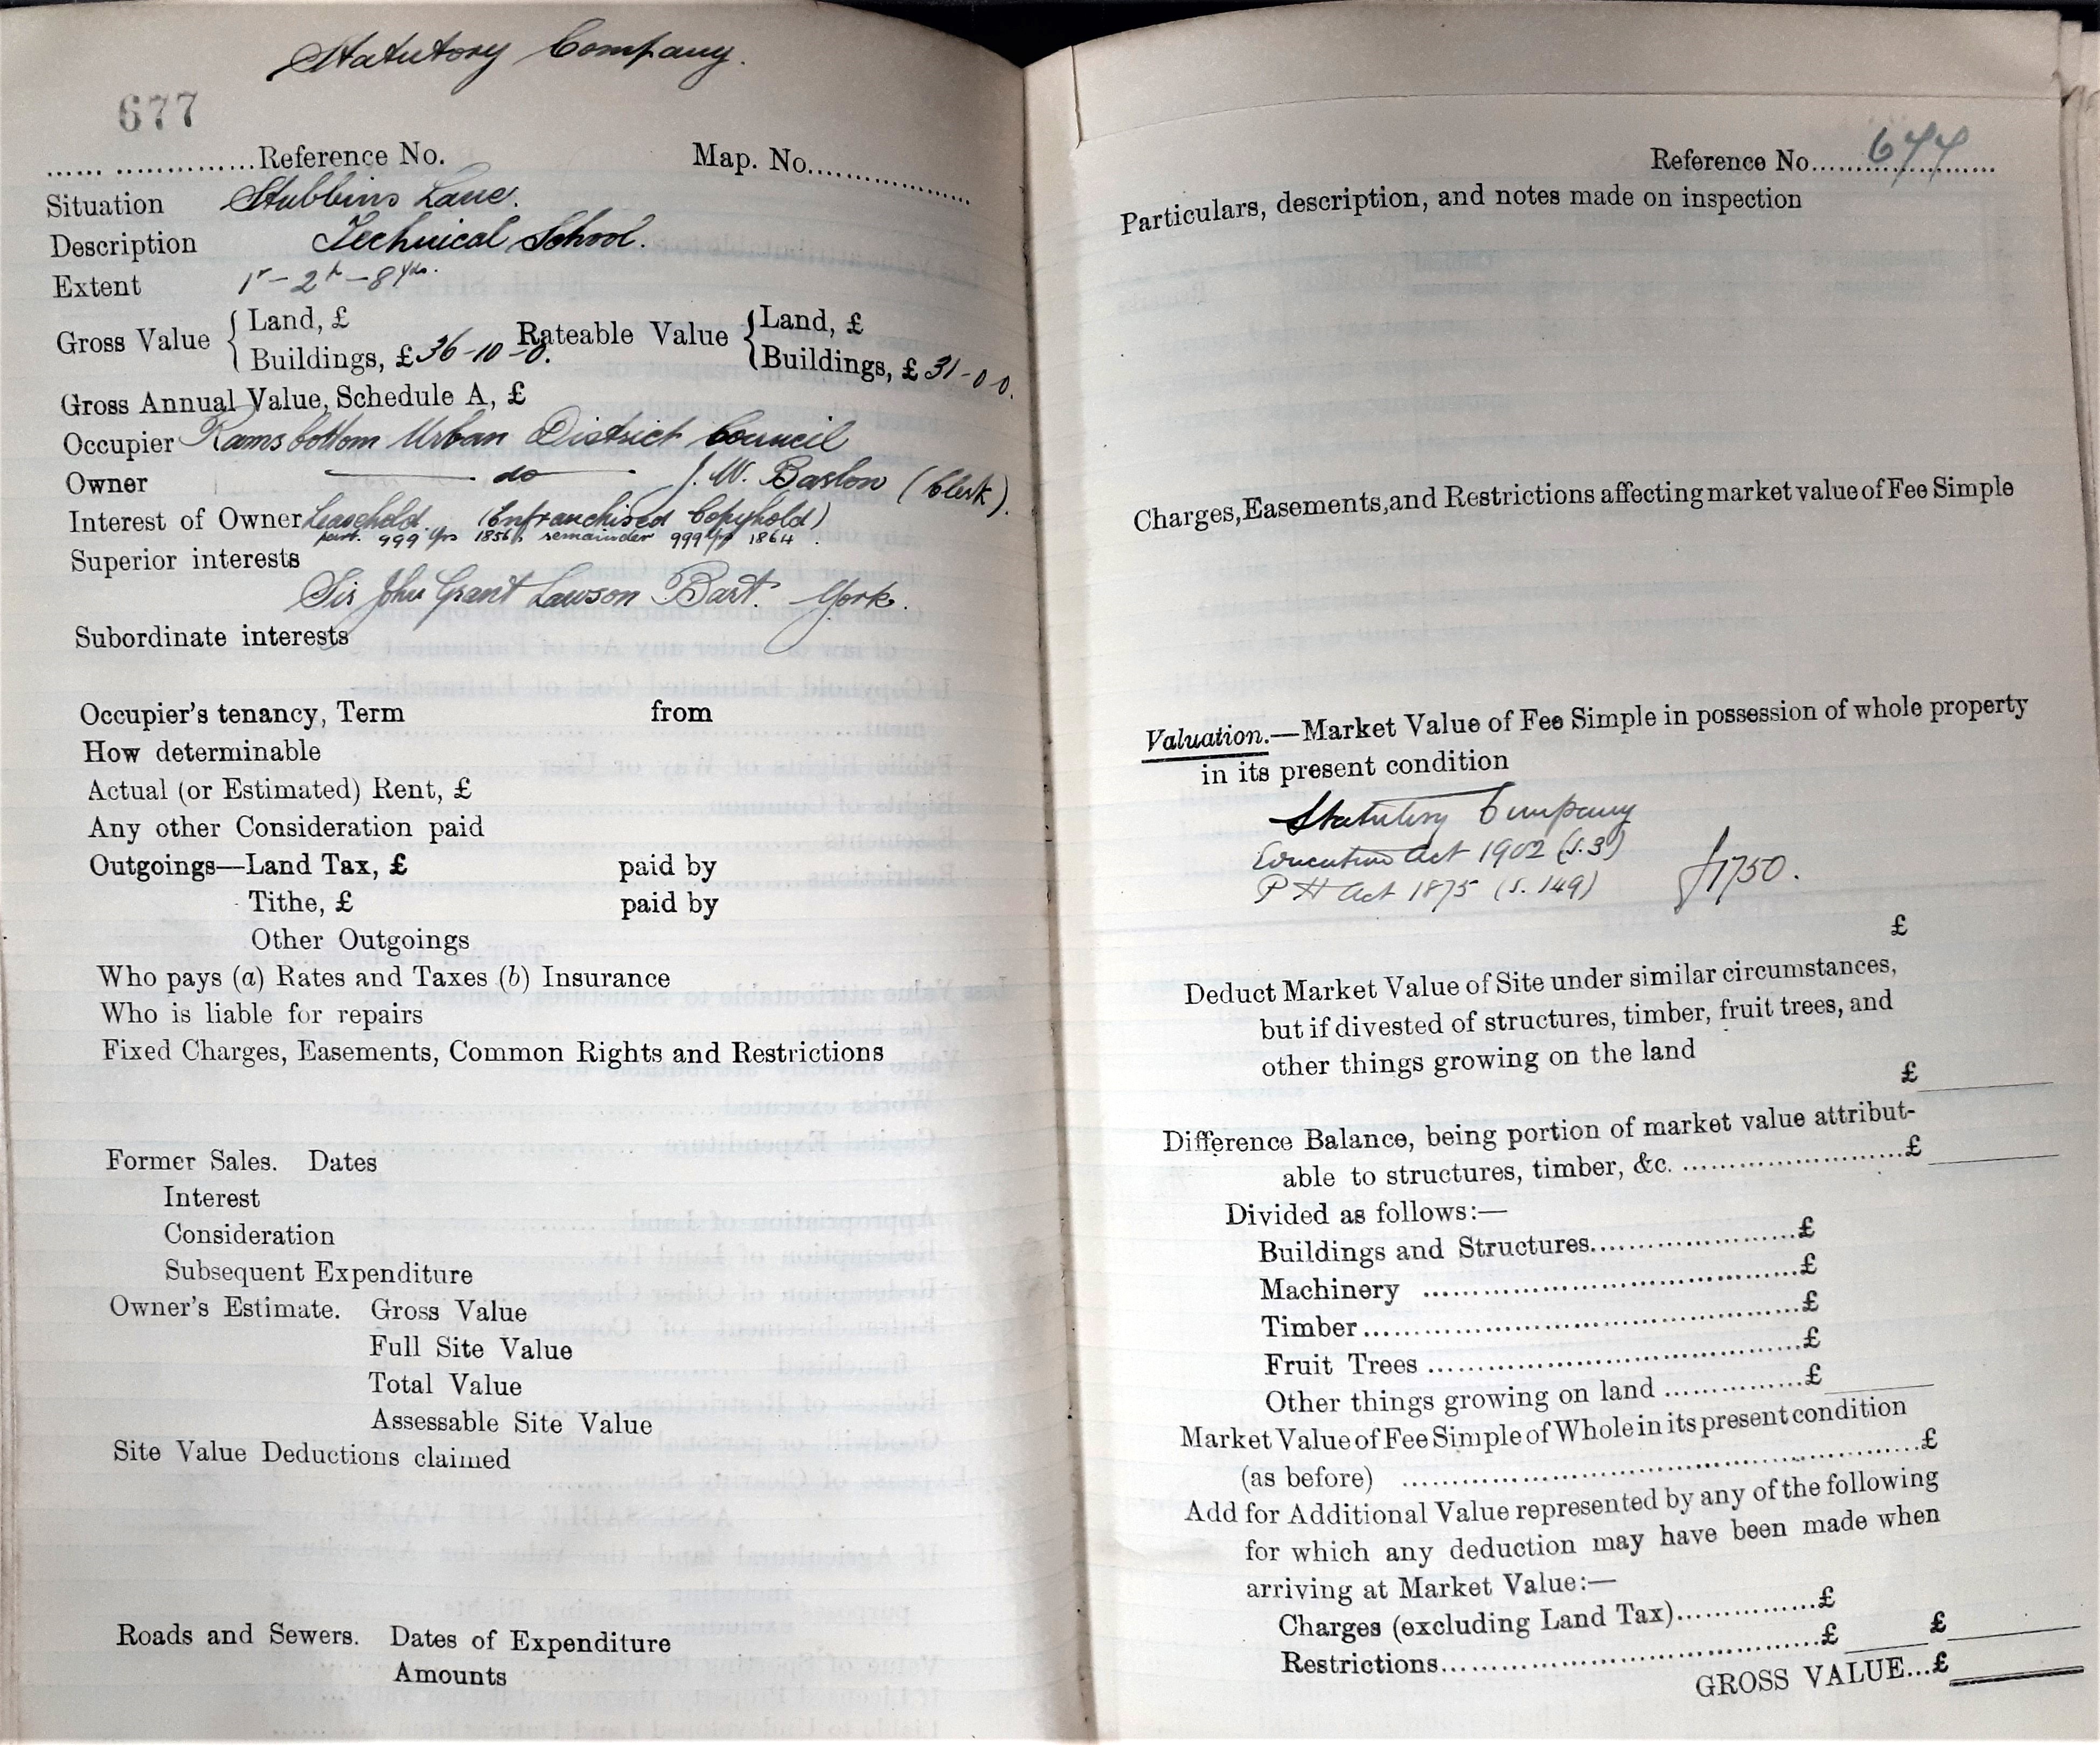 Statutory Company.
677
.....................Reference No. Map. No..................
Situation Stubbins Lane.
Description Technical School.
Extent 1r - 2p - 8yds.
Gross Value { Land, £ Rateable Value { Land, £
Buildings, £36-10-0. Buildings, £31-0 0.
Gross Annual Value, Schedule A, £
Occupier Ramsbottom Urban District Council
Owner do J. W. Baslon (Clerk).
Interest of Owner Leasehold. (Enfranchised Copyhold)
part. 999 yrs 1856, remainder 999 yrs 1864
Superior interests
Sir John Grant Lawson Bart. York.
Subordinate interests
Occupier's tenancy, Term from
How determinable
Actual (or Estimated) Rent, £
Any other Consideration paid
Outgoings—Land Tax, £ paid by
Tithe, £ paid by
Other Outgoings
Who pays (a) Rates and Taxes (b) Insurance
Who is liable for repairs
Fixed Charges, Easements, Common Rights and Restrictions
Former Sales. Dates
Interest
Consideration
Subsequent Expenditure
Owner's Estimate. Gross Value
Full Site Value
Total Value
Assessable Site Value
Site Value Deductions claimed
Roads and Sewers. Dates of Expenditure
Amounts
Reference No......677......
Particulars, description, and notes made on inspection
Charges, Easements, and Restrictions affecting market value of Fee Simple
Valuation.—Market Value of Fee Simple in possession of whole property
in its present condition
Statutory Company
Education Act 1902 (S.3)
P H Act 1875 (S. 149) £1750.
£
Deduct Market Value of Site under similar circumstances,
but if divested of structures, timber, fruit trees, and
other things growing on the land
£
Difference Balance, being portion of market value attribut-
able to structures, timber, &c. ........................£
Divided as follows:—
Buildings and Structures........................£
Machinery ........................£
Timber........................£
Fruit Trees ........................£
Other things growing on land ...............£
Market Value of Fee Simple of Whole in its present condition
(as before) ........................£
Add for Additional Value represented by any of the following
for which any deduction may have been made when
arriving at Market Value:—
Charges (excluding Land Tax)...............£
Restrictions........................£ £
GROSS VALUE...£